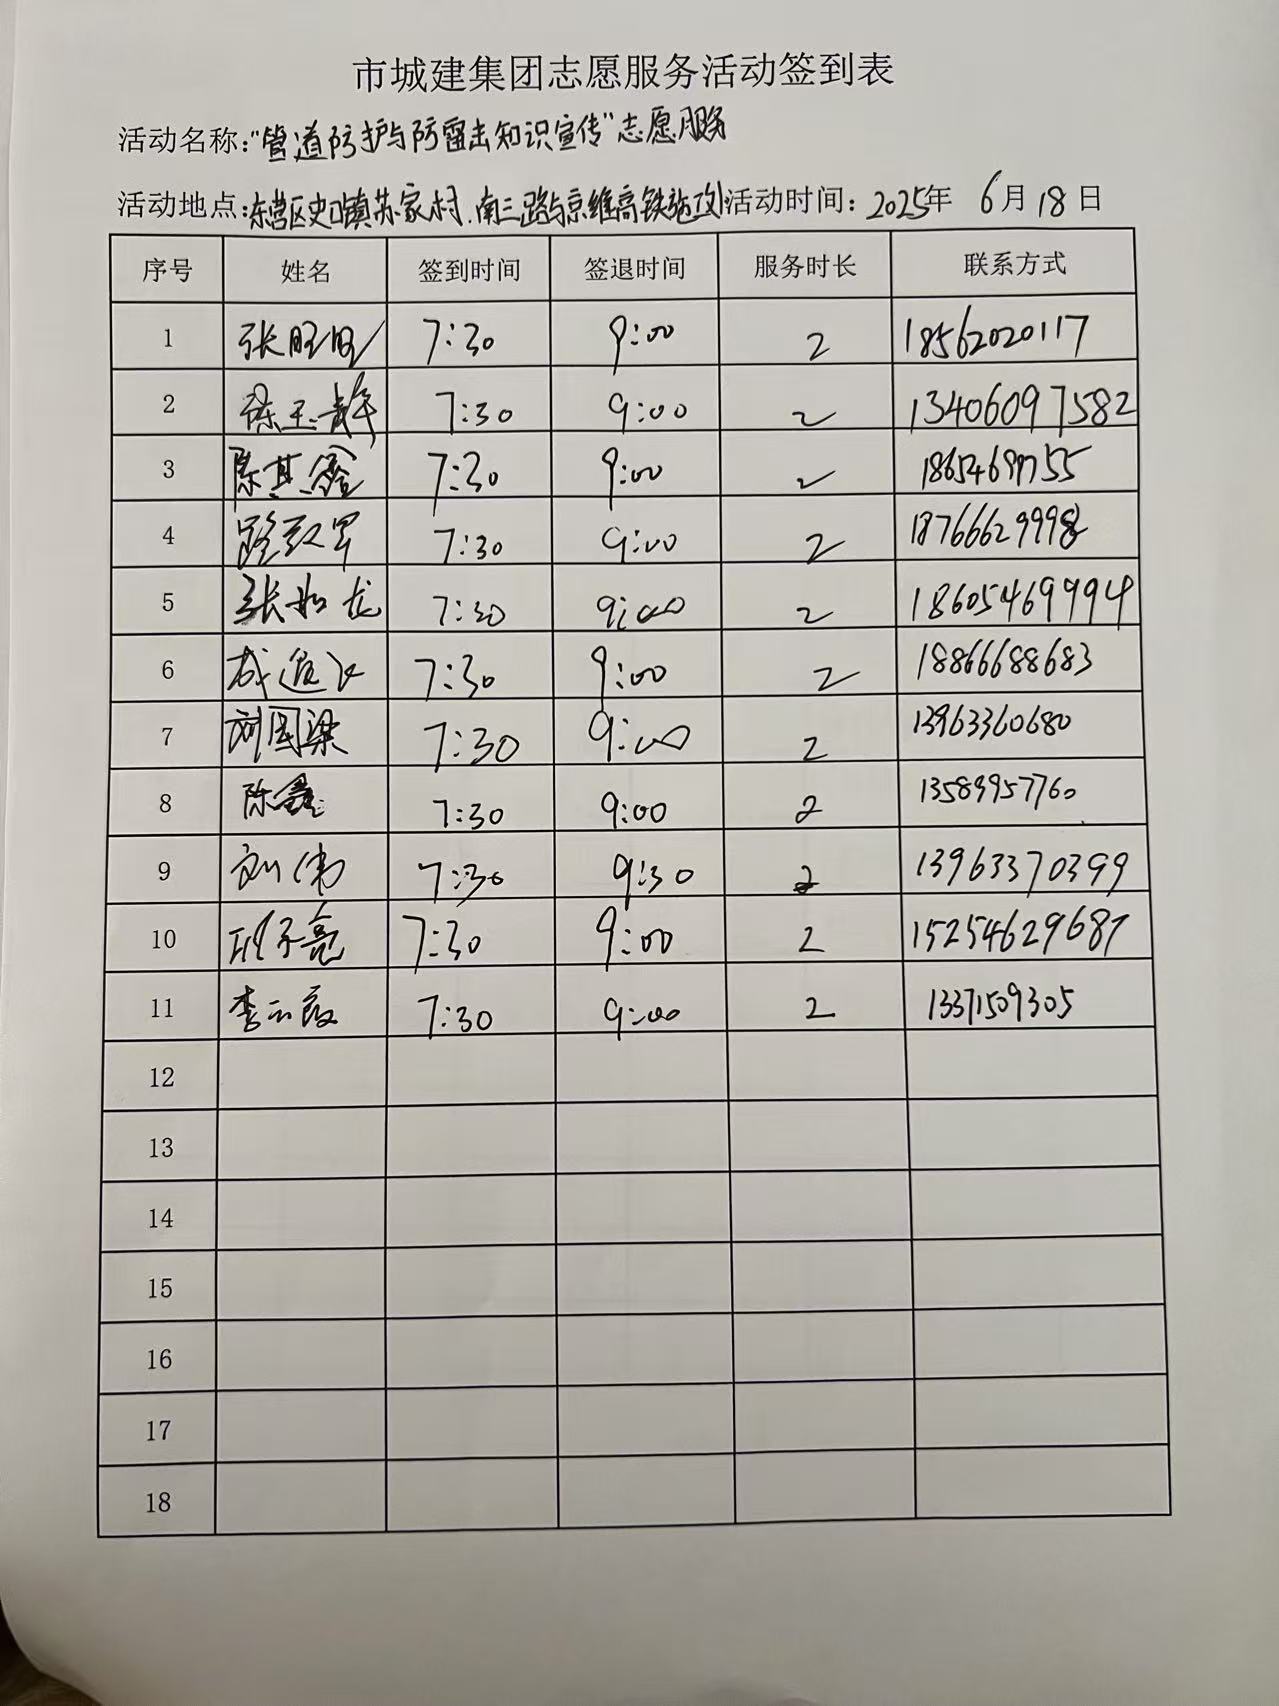 市城建集团志愿服务活动签到表
活动名称:"管道防护与防雷击知识宣传"志愿服务
活动地点:东营区史口镇苏家村.南三路与京维高铁 活动时间: 2025年 6月18日
序号 姓名 签到时间 签退时间 服务时长 联系方式
1 张旺旺 7:30 9:00 2 18562020117
2 徐玉静 7:30 9:00 2 13406097582
3 陈其鑫 7:30 9:00 2
4 7:30 9:00 2 18766629998
5 张如龙 7:30 9:00 2 18605469994
6 7:30 9:00 2 18866688683
7 刘国梁 7:30 9:00 2 13963360680
8 陈鑫 7:30 9:00 2 13589957760
9 刘伟 7:30 9:30 2 13963370399
10 7:30 9:00 2 15254629687
11 李云霞 7:30 9:00 2 13371509305
12
13
14
15
16
17
18